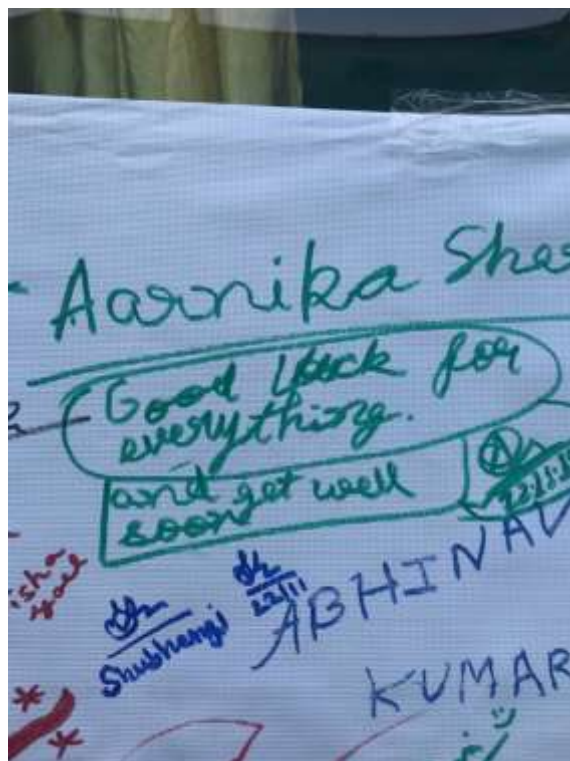 Aarnika
Good luck for
everything.
and get well
soon
22.11.
isha
22/11
Shubhangi
ABHINAV
KUMAR